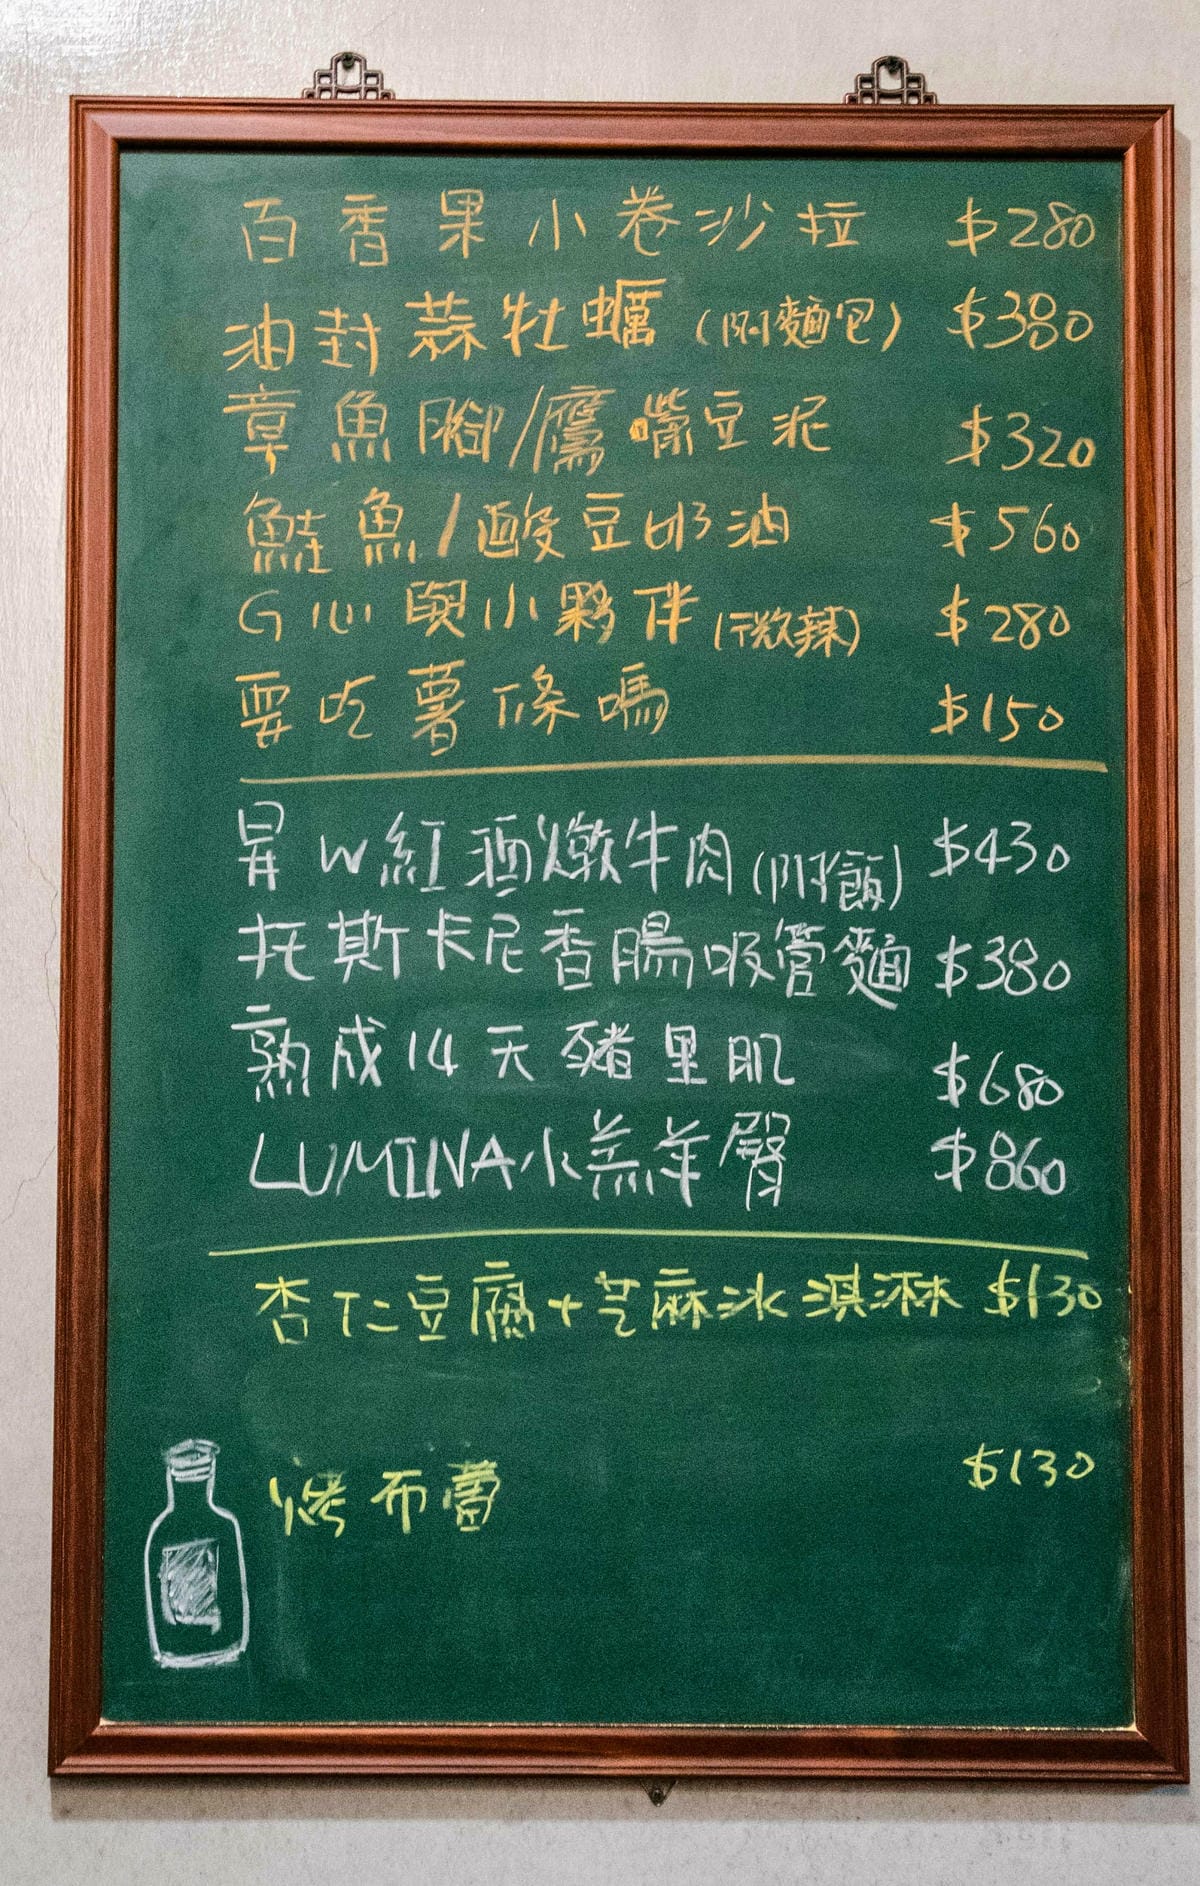 百香果小卷沙拉 $280
油封蒜牡蠣(附麵包) $380
章魚腳/鷹嘴豆泥 $320
鮭魚/酸豆奶油 $560
G心與小夥伴(微辣) $280
要吃薯條嗎 $150
W紅酒燉牛肉(附飯) $430
托斯卡尼香腸吸管麵 $380
熟成14天豬里肌 $680
LUMINA小羔羊臀 $860
杏仁豆腐+芝麻冰淇淋 $130
烤布蕾 $130